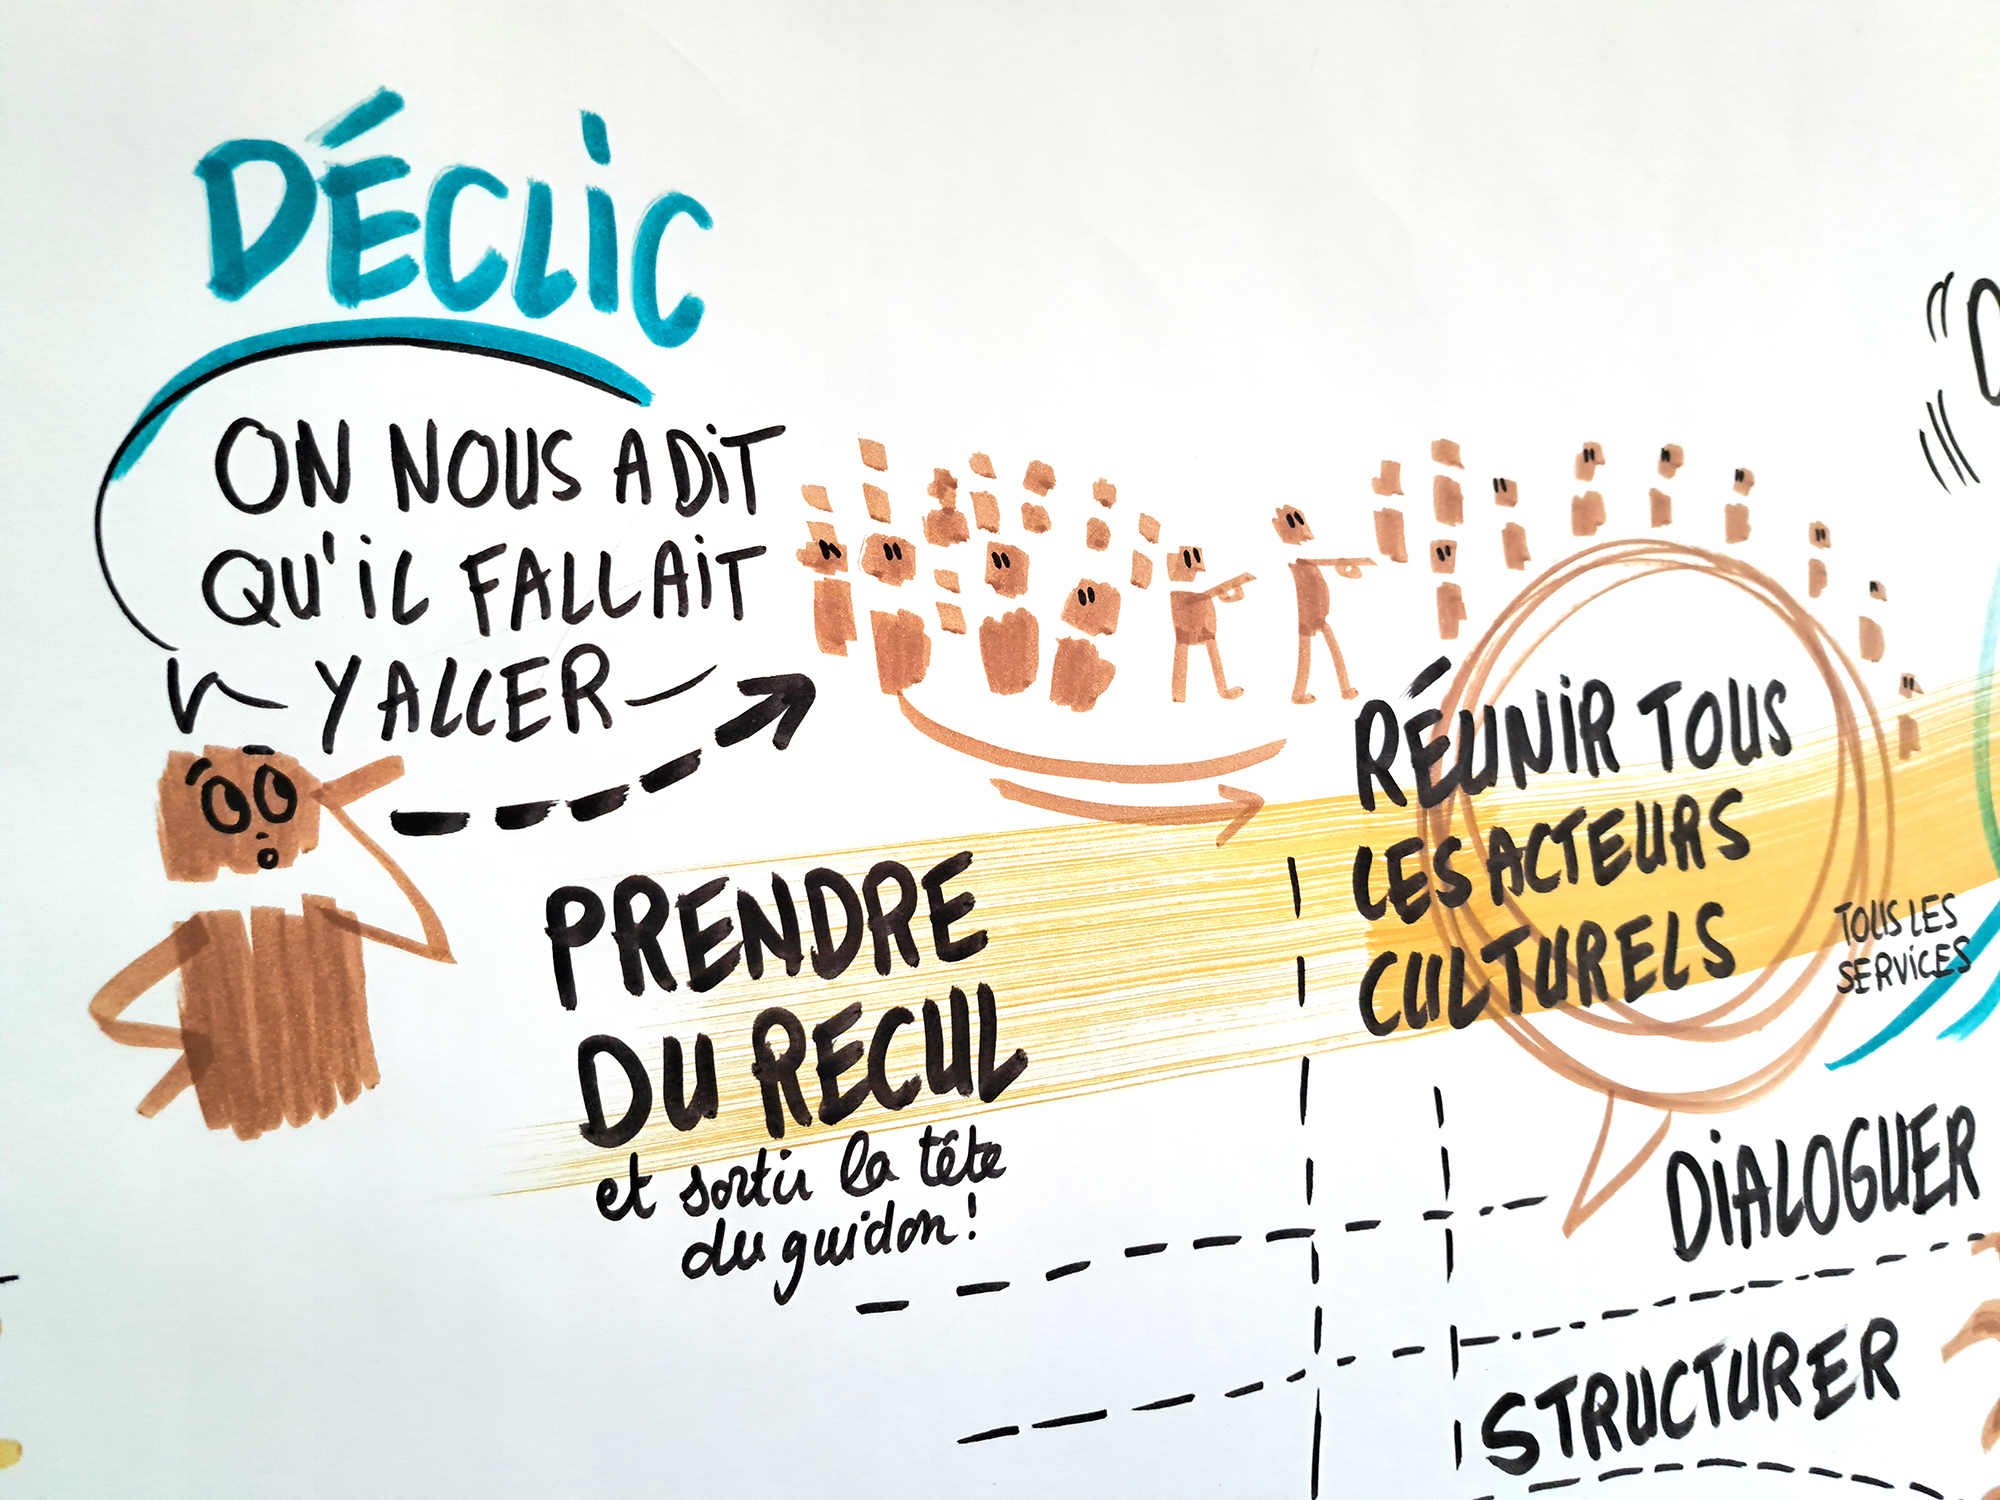 DÉCLIC
ON NOUS A DIT
QU'IL FALLAIT
Y ALLER
PRENDRE
DU RECUL
et sortir la tête
du guidon!
RÉUNIR TOUS
LES ACTEURS
CULTURELS
TOUS LES
SERVICES
DIALOGUER
STRUCTURER